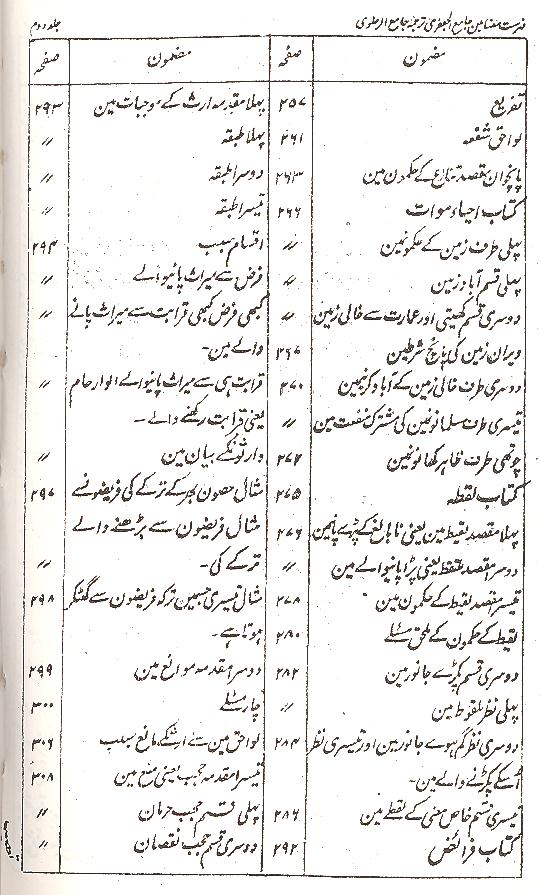 فہرست مضامین جامع الجعفری ترجمہ جامع الرضوی جلد دوم
مضمون صفحہ
تفریع ۲۵۷
لواحق شفعہ ۲۶۱
پانچوان مقصد تنازع کے حکمون مین ۲۶۳
کتاب احیاء موات ۲۶۶
پہلی طرف زمین کے حکمونمین 〃
پہلی قسم آباد زمین 〃
دوسری قسم کھیتی اور عمارت سے خالی زمین 〃
ویران زمین کی پانچ شرطین ۲۶۷
دوسری طرف خالی زمین کے آباد کرنیمین ۲۷۰
تیسری طرف مسلمانونکین کی مشترک منفعت مین 〃
چوتھی طرف ظاہر کھانونمین ۲۷۲
کتاب لقطہ ۲۷۵
پہلا مقصد لقیط مین یعنی نابالغ کے پڑے پانیمین ۲۷۶
دوسرا مقصد ملتقط یعنی پڑا پانیوالے مین 〃
تیسرا مقصد لقیط کے حکمون مین ۲۷۸
لقیط کے حکمون کے ملحق مسئلے ۲۸۰
دوسری قسم پکڑے جانور مین ۲۸۲
پہلی نظر ملقوط مین 〃
دوسری نظر گم ہوے جانور مین اور تیسری نظر ۲۸۴
اُسکے پکڑنے والے مین۔
تیسری قسم خاص معنی کے لقطے مین ۲۸۶
کتاب فرائض ۲۹۲
مضمون صفحہ
پہلا مقدمہ ارث کے موجبات مین ۲۹۳
پہلا طبقہ 〃
دوسرا طبقہ 〃
تیسرا طبقہ 〃
اقسام سبب ۲۹۴
فرض سے میراث پانیوالے 〃
کبھی فرض کبھی قرابت سے میراث پانے 〃
والے مین۔
قرابت ہی سے میراث پانیوالے الوارحام 〃
یعنی قرابت رکھنے والے۔
وارثونکے بیان مین 〃
مثال حصون بھر کے ترکے کی فریضونے ۲۹۷
مثال فریضون سے بڑھنے والے
ترکے کی۔ 〃
مثال تیسری جسمین ترکہ فریضون سے گھٹکر ۲۹۸
ہوتا ہے۔
دوسرا مقدمہ موانع مین ۲۹۹
چار مسئلے ۳۰۰
لواحق مین سے ارثکے مانع سبب ۳۰۶
تیسرا مقدمہ حجب یعنی منع مین ۳۰۸
پہلی قسم حجب حرمان 〃
دوسری قسم حجب نقصان 〃